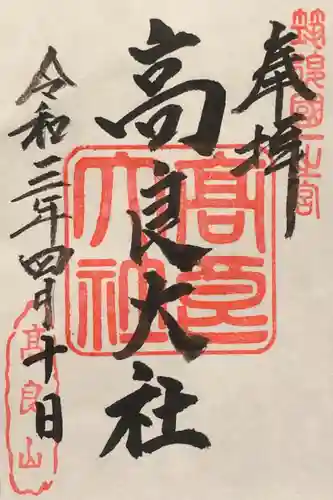 奉拝
筑後國一之宮
高良大社
高良大社
令和三年四月十日
高良山